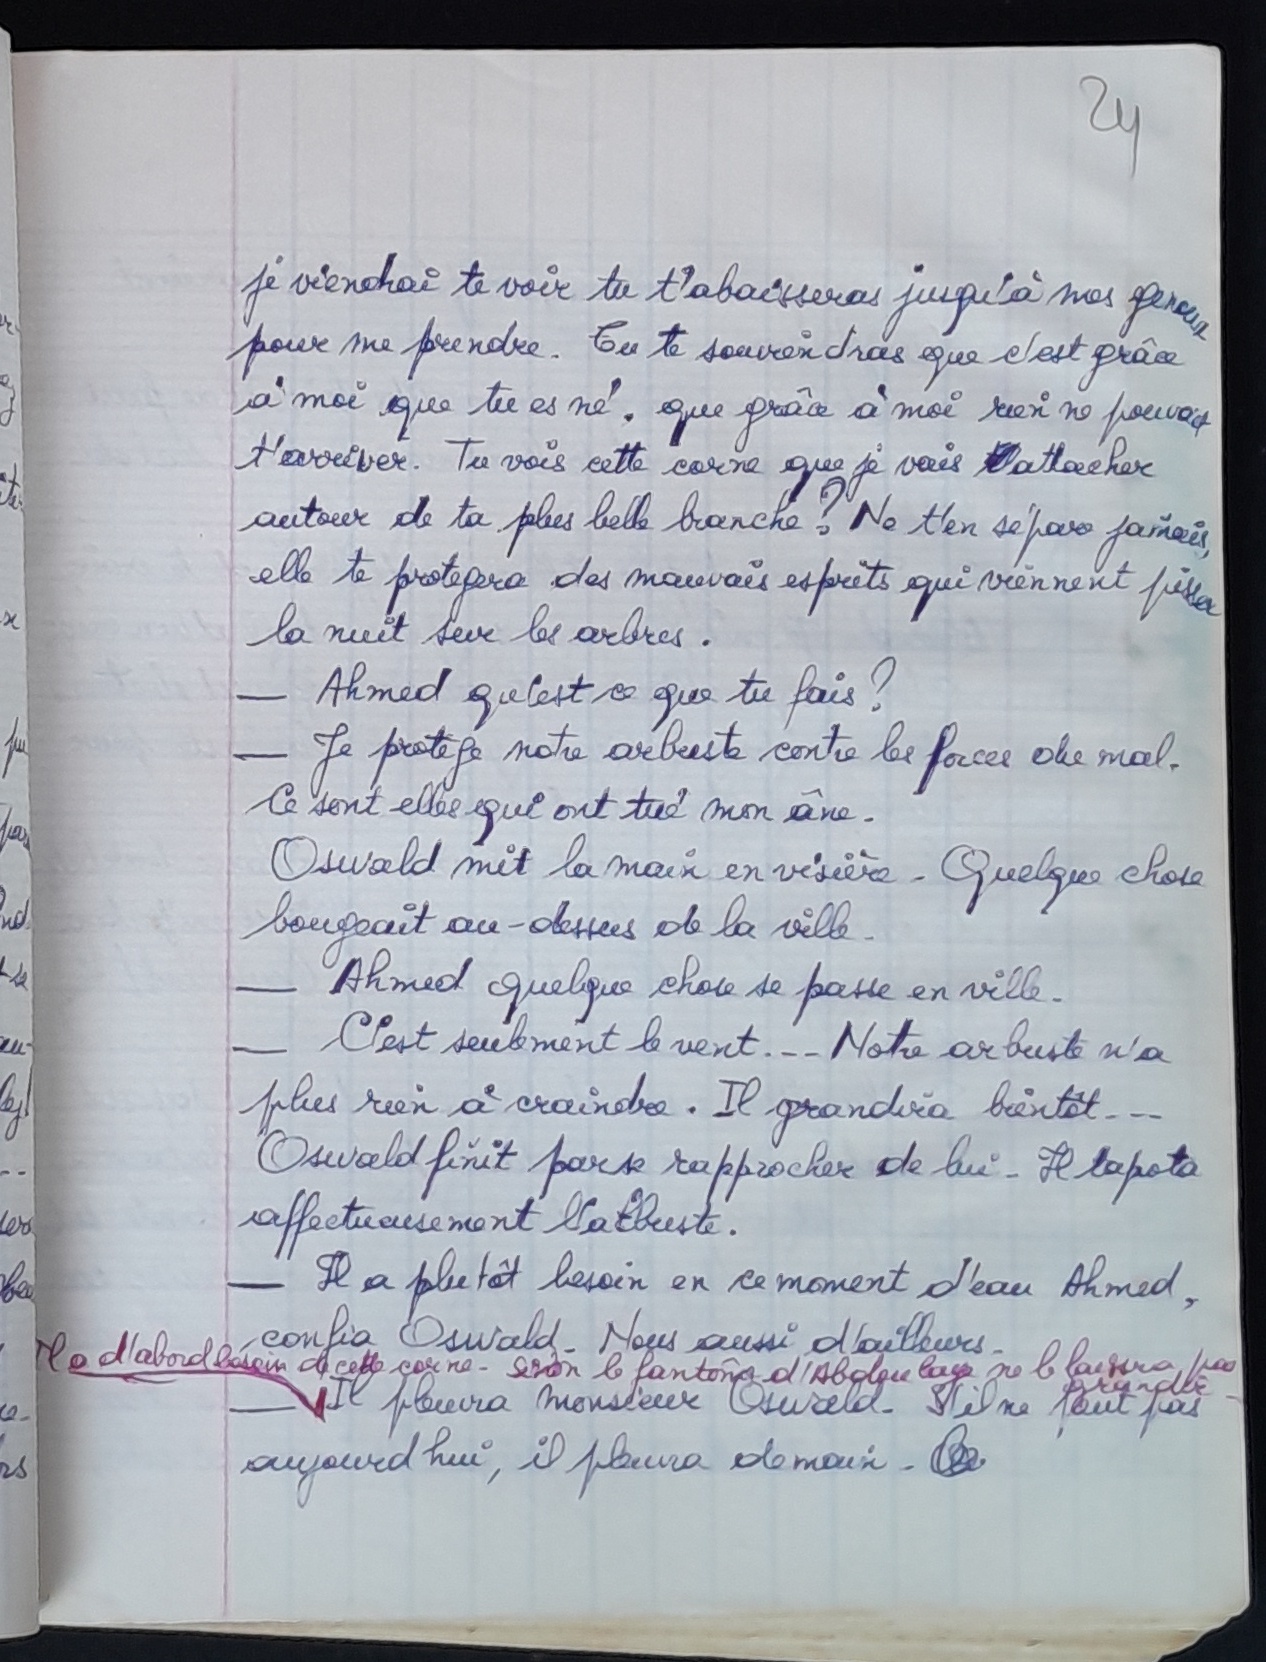 24
je viendrai te voir tu t'abaisseras jusqu'à mes genoux
pour me prendre. Tu te souviendras que c'est grâce
à moi que tu es né. que grâce à moi rien ne pouvait
t'arriver. Tu vois cette corne que je vais attacher
autour de ta plus belle branche? Ne t'en sépare jamais,
elle te protegera des mauvais esprits qui viennent pisser
la nuit sur les arbres.
— Ahmed qu'est ce que tu fais?
— Je protège notre arbuste contre les forces du mal.
Ce sont elles qui ont tué mon âne.
Oswald mit la main en visière. Quelque chose
bougeait au-dessus de la ville.
— Ahmed quelque chose se passe en ville.
— C'est seulement le vent.... Notre arbuste n'a
plus rien à craindre. Il grandira bientôt...
Oswald finit par se rapprocher de lui. Il tapota
affectueusement l'arbuste.
— Il a plutôt besoin en ce moment d'eau Ahmed,
confia Oswald. Nous aussi d'ailleurs.
Il a d'abord besoin de cette corne. Sinon le fantôme d'Abdoulaye ne le laissera pas
grandir.
— Il pleuvra monsieur Oswald. S'il ne pleut pas
aujourd'hui, il pleuvra demain.